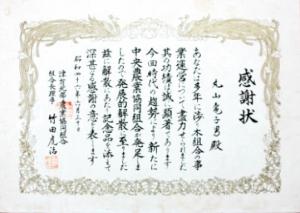 感謝状
丸山亀子男殿
あなたは多年に渉り本組合の事
業運営について盡力せられました
其の功績は誠に顕著であります
今回時代の趨勢により新たに
中央農業協同組合が発足しま
したので発展的解散に至りました
茲に解散にあたり記念品を添えて
深甚なる感謝の意を表します
昭和四十六年六月三十日
農業協同組合
組合長理事 竹田